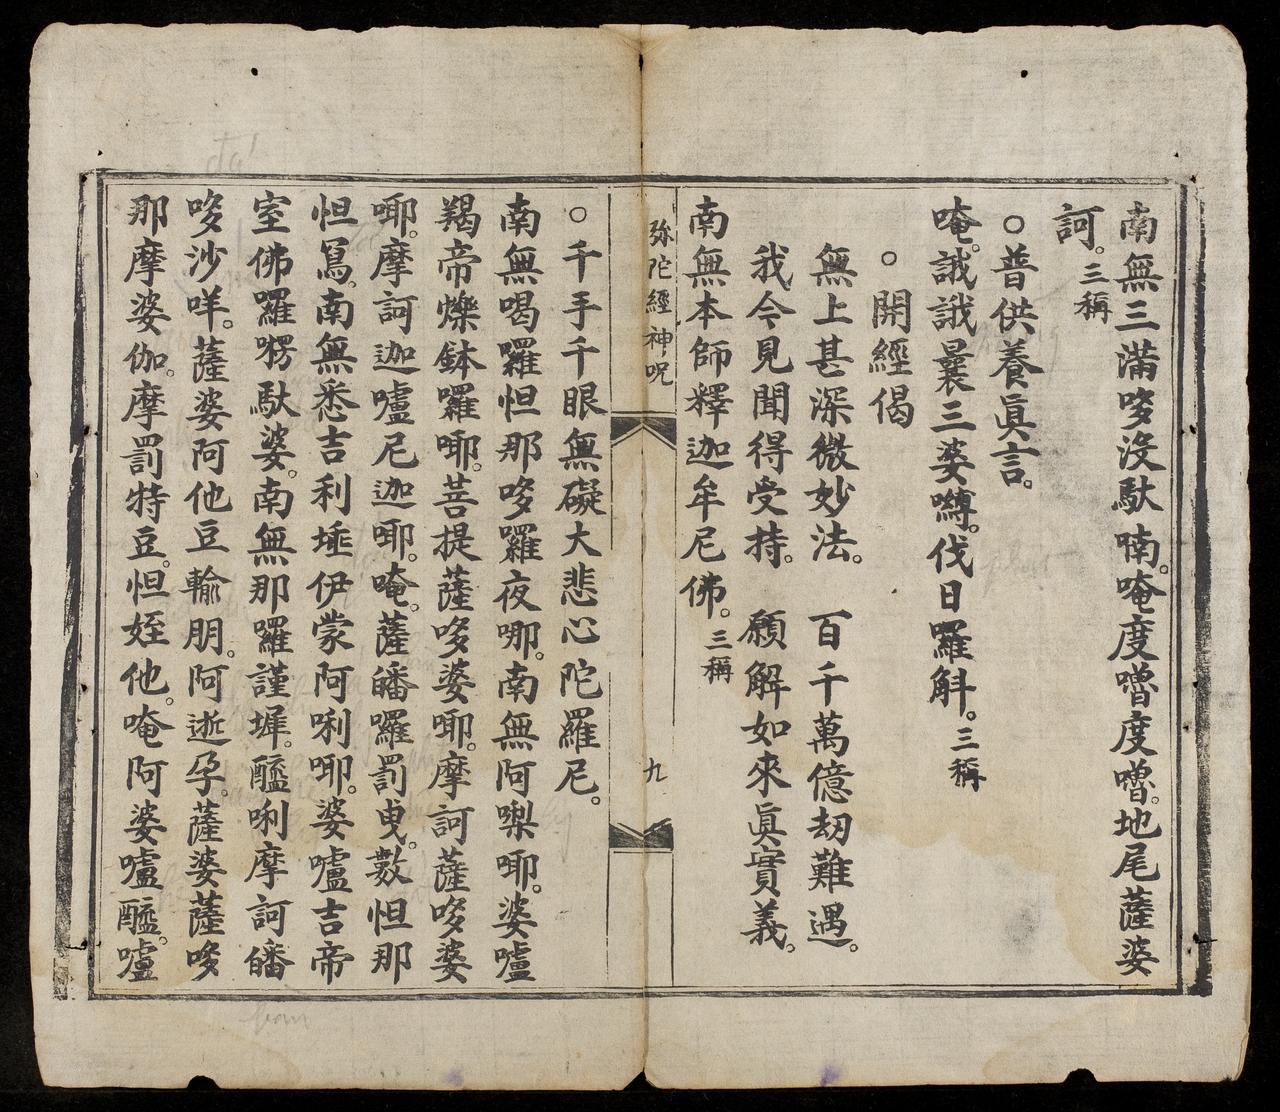 南無三滿哆沒馱喃。唵度嚕度嚕。地尾薩婆
訶。三稱
○普供養眞言。
唵。誐誐曩三婆嚩。伐日羅斛。三稱
○開經偈
無上甚深微妙法。 百千萬億劫難遇。
我今見聞得受持。 願解如來眞實義。
南無本師釋迦牟尼佛。三稱
弥陀經神呪 九
○千手千眼無礙大悲心陀羅尼。
南無喝羅怛那哆羅夜哪。南無阿唎唧。婆嚧
羯帝爍鉢囉唧。菩提薩哆婆唧。摩訶薩哆婆
唧。摩訶迦嚧尼迦唧。唵。薩皤囉罰曳。數怛那
怛寫。南無悉吉利埵伊蒙阿唎唧。婆嚧吉帝
室佛囉楞馱婆。南無那囉謹墀。醯唎摩訶皤
哆沙咩。薩婆阿他豆輸朋。阿逝孕。薩婆薩哆
那摩婆伽。摩罰特豆。怛姪他。唵阿婆嚧醯。嚧